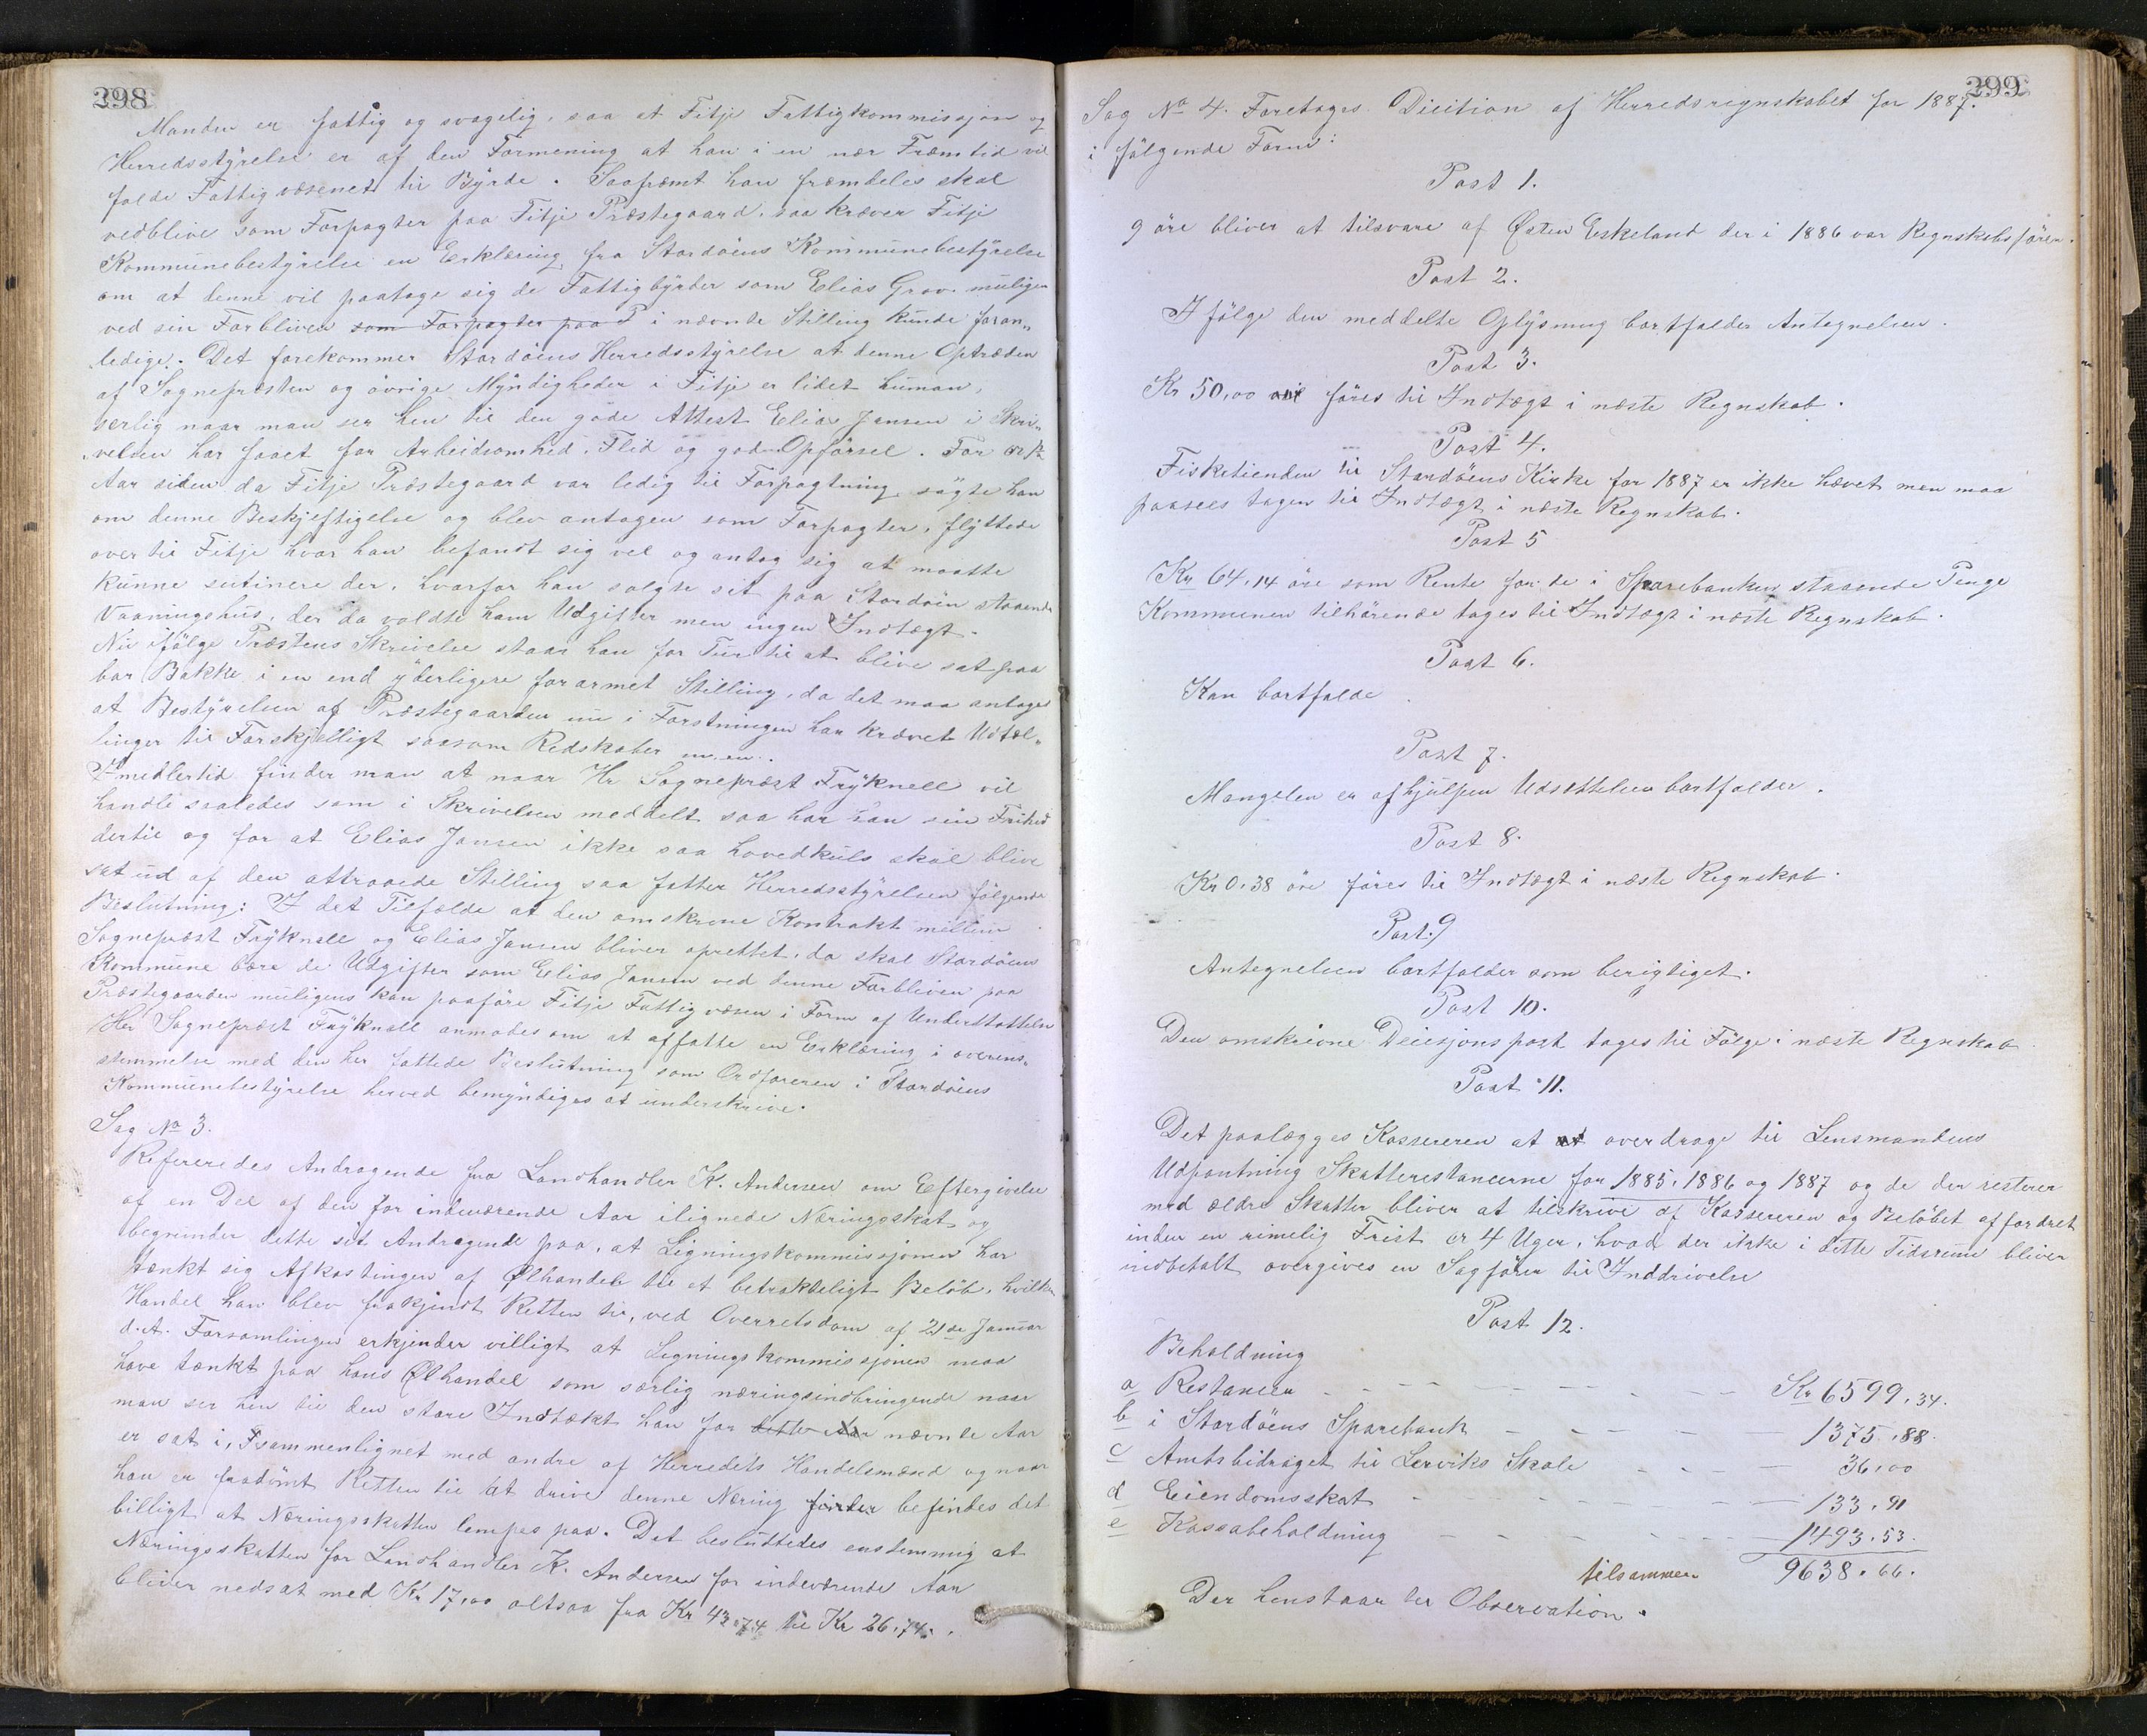 298
Manden er fattig og svagelig, saa at Fitje Fattigkommissjon og
Herredsstyrelse er af den Formening at han i en nær Fræmtid vil
falde Fattigvæsenet til Byrde. Saafræmt han fræmdeles skal
vedblive som Forpagter paa Fitje Præstegaard, saa kræver Fitje
Kommunebestyrelse en Erklæring fra Stordøens Kommunebestyrelse
om at denne vil paatage sig de Fattigbyrder som Elias Grov muligen
ved sin Forbliven som Forpagter paa P i nævnte Stilling kunde foran„
ledige. Det forekommer Stordøens Herredsstyrelse at denne Optræden
af Sognepræsten og øvrige Myndigheder i Fitje er lidet human,
serlig naar man ser hen til den gode Attest Elias Jansen i Skri„
velsen har faaet for Arbeidsomhed, Flid og god Opførsel. For
Aar siden da Fitje Præstegaard var ledig til Forpagtning søgte han
om denne Beskjeftigelse og blev antagen som Forpagter, flyttede
over til Fitje hvor han befandt sig vel og antog sig at maatte
kunne sutinere der, hvorfor han solgte sit paa Stordøen staaende
Vaaningshus, der da voldte ham Udgifter men ingen Indtægt.
Nu ifølge Præstens Skrivelse staar han for Tur til at blive sat paa
bar Bakke i en end yderligere forarmet Stilling, da det maa antages
at Bestyrelsen af Præstegaarden nu i Førstningen har krævet Udtæl„
linger til Forskjelligt saasom Redskaber m.m..
Imedlertid finder man at naar Hr Sognepræst Fryknell vil
handle saaledes som i Skrivelsen meddelt saa har han sin Frihed
dertil og for at Elias Jansen ikke saa hovedkuls skal blive
sat ud af den attraaede Stilling saa fatter Herredsstyrelsen følgende
Beslutning: I det Tilfælde at den omskrevne Kontrakt mellem
Sognepræst Fryknell og Elias Jansen bliver oprettet, da skal Stordøens
Kommune bære de Udgifter som Elias Jansen ved denne Forbliven paa
Præstegaarden muligens kan paaføre Fitje Fattigvæsen i Form af Understøttelse
Her Sognepræst Fryknell anmodes om at affatte en Erklæring i overens„
stemmelse med den her fattede Beslutning som Ordføreren i Stordøens
Kommunebestyrelse herved bemyndiges at underskrive.
Sag No 3.
Refereredes Andragende fra Landhandler K. Andersen om Eftergivelse
af en Del af den for indeværende Aar ilignede Næringsskat og
begrunder dette sit Andragende paa, at Ligningskommissjonen har
tænkt sig Afkastingen af Ølhandel til et betrakteligt Beløb, hvilken
Handel han blev frakjendt Retten til, ved Overretsdom af 21de Januar
d.A. Forsamlingen erkjender villigt at Ligningskommissjonen maa
have tænkt paa hans Ølhandel som særlig næringsindbringende naar
man ser hen til den store Indtækt han for dette Aar nævnte Aar
er sat i, sammenlignet med andre af Herredets Handelsmænd og naar
han er fradømt Retten til at drive denne Næring finder befindes det
billigt at Næringsskatten lempes paa. Det besluttedes enstemmig at
Næringsskatten for Landhandler K. Andersen for indeværende Aar
bliver nedsat med Kr 17,00 altsaa fra Kr 43,74 til Kr 26,74.
299
Sag No 4. Foretages Dicition af Herredsregnskabet for 1887.
i følgende Form:
Post 1.
9 øre bliver at tilsvare af Østen Eskeland der i 1886 var Regnskabsfører.
Post 2.
Ifølge den meddelte Oplysning bortfalder Antegnelsen.
Post 3.
Kr 50,00 føres til Indtægt i næste Regnskab.
Post 4.
Fisketienden til Stordøens Kirke for 1887 er ikke hævet men maa
paasees tagen til Indtægt i næste Regnskab.
Post 5
Kr 64,14 øre som Rente for de i Sparebanken staaende Penge
Kommunen tilhørende tages til Indtægt i næste Regnskab.
Post 6.
Kan bortfalde
Post 7.
Mangelen er afhjulpen Udsettelsen bortfalder.
Post 8.
Kr 0,38 øre føres til Indtægt i næste Regnskab.
Post. 9
Antegnelsen bortfalder som berigtiget.
Post 10.
Den omskrevne Deisjonspost tages til Følge i næste Regnskab
Post 11.
Det paalægges Kassereren at at overdrage til Lensmandens
Udpantning Skatterestancerne for 1885, 1886 og 1887 og de der resterer
med ældre Skatter bliver at tilskrive af Kassereren og Beløbet affordret
inden en rimelig Frist er 4 Uger, hvad der ikke i dette Tidsrum bliver
indbetalt overgives en Sagfører til Inddrivelse
Post 12.
Beholdning
a Restancer - - - - Kr 6599,34.
b i Stordøens Sparebank - - - - 1375,88.
c Amtsbidraget til Lerviks Skole - - - 36,00
d Eiendomsskat - - - - 133,91
e Kassabeholdning - - - - 1493,53.
tilsammen 9638,66.
Der henstaar til Observation.